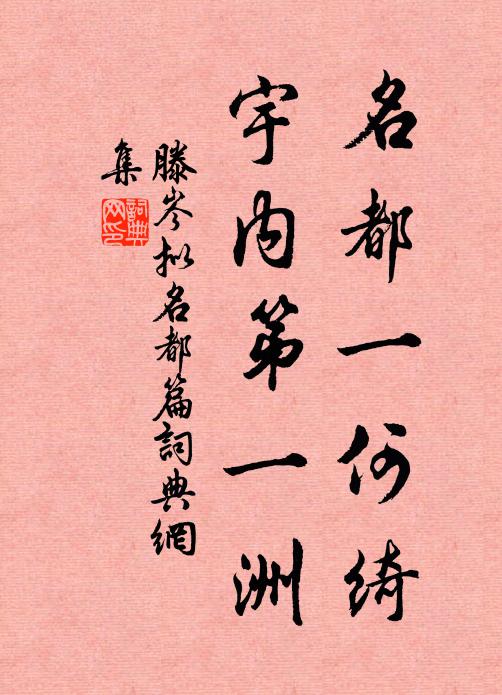 名都一何綺
宇内第一洲
滕岑拟名都篇詞典網
集
詞典网印